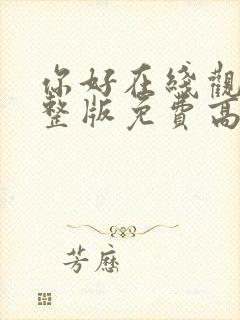 你好在綫觀
整版免費高
芳歷